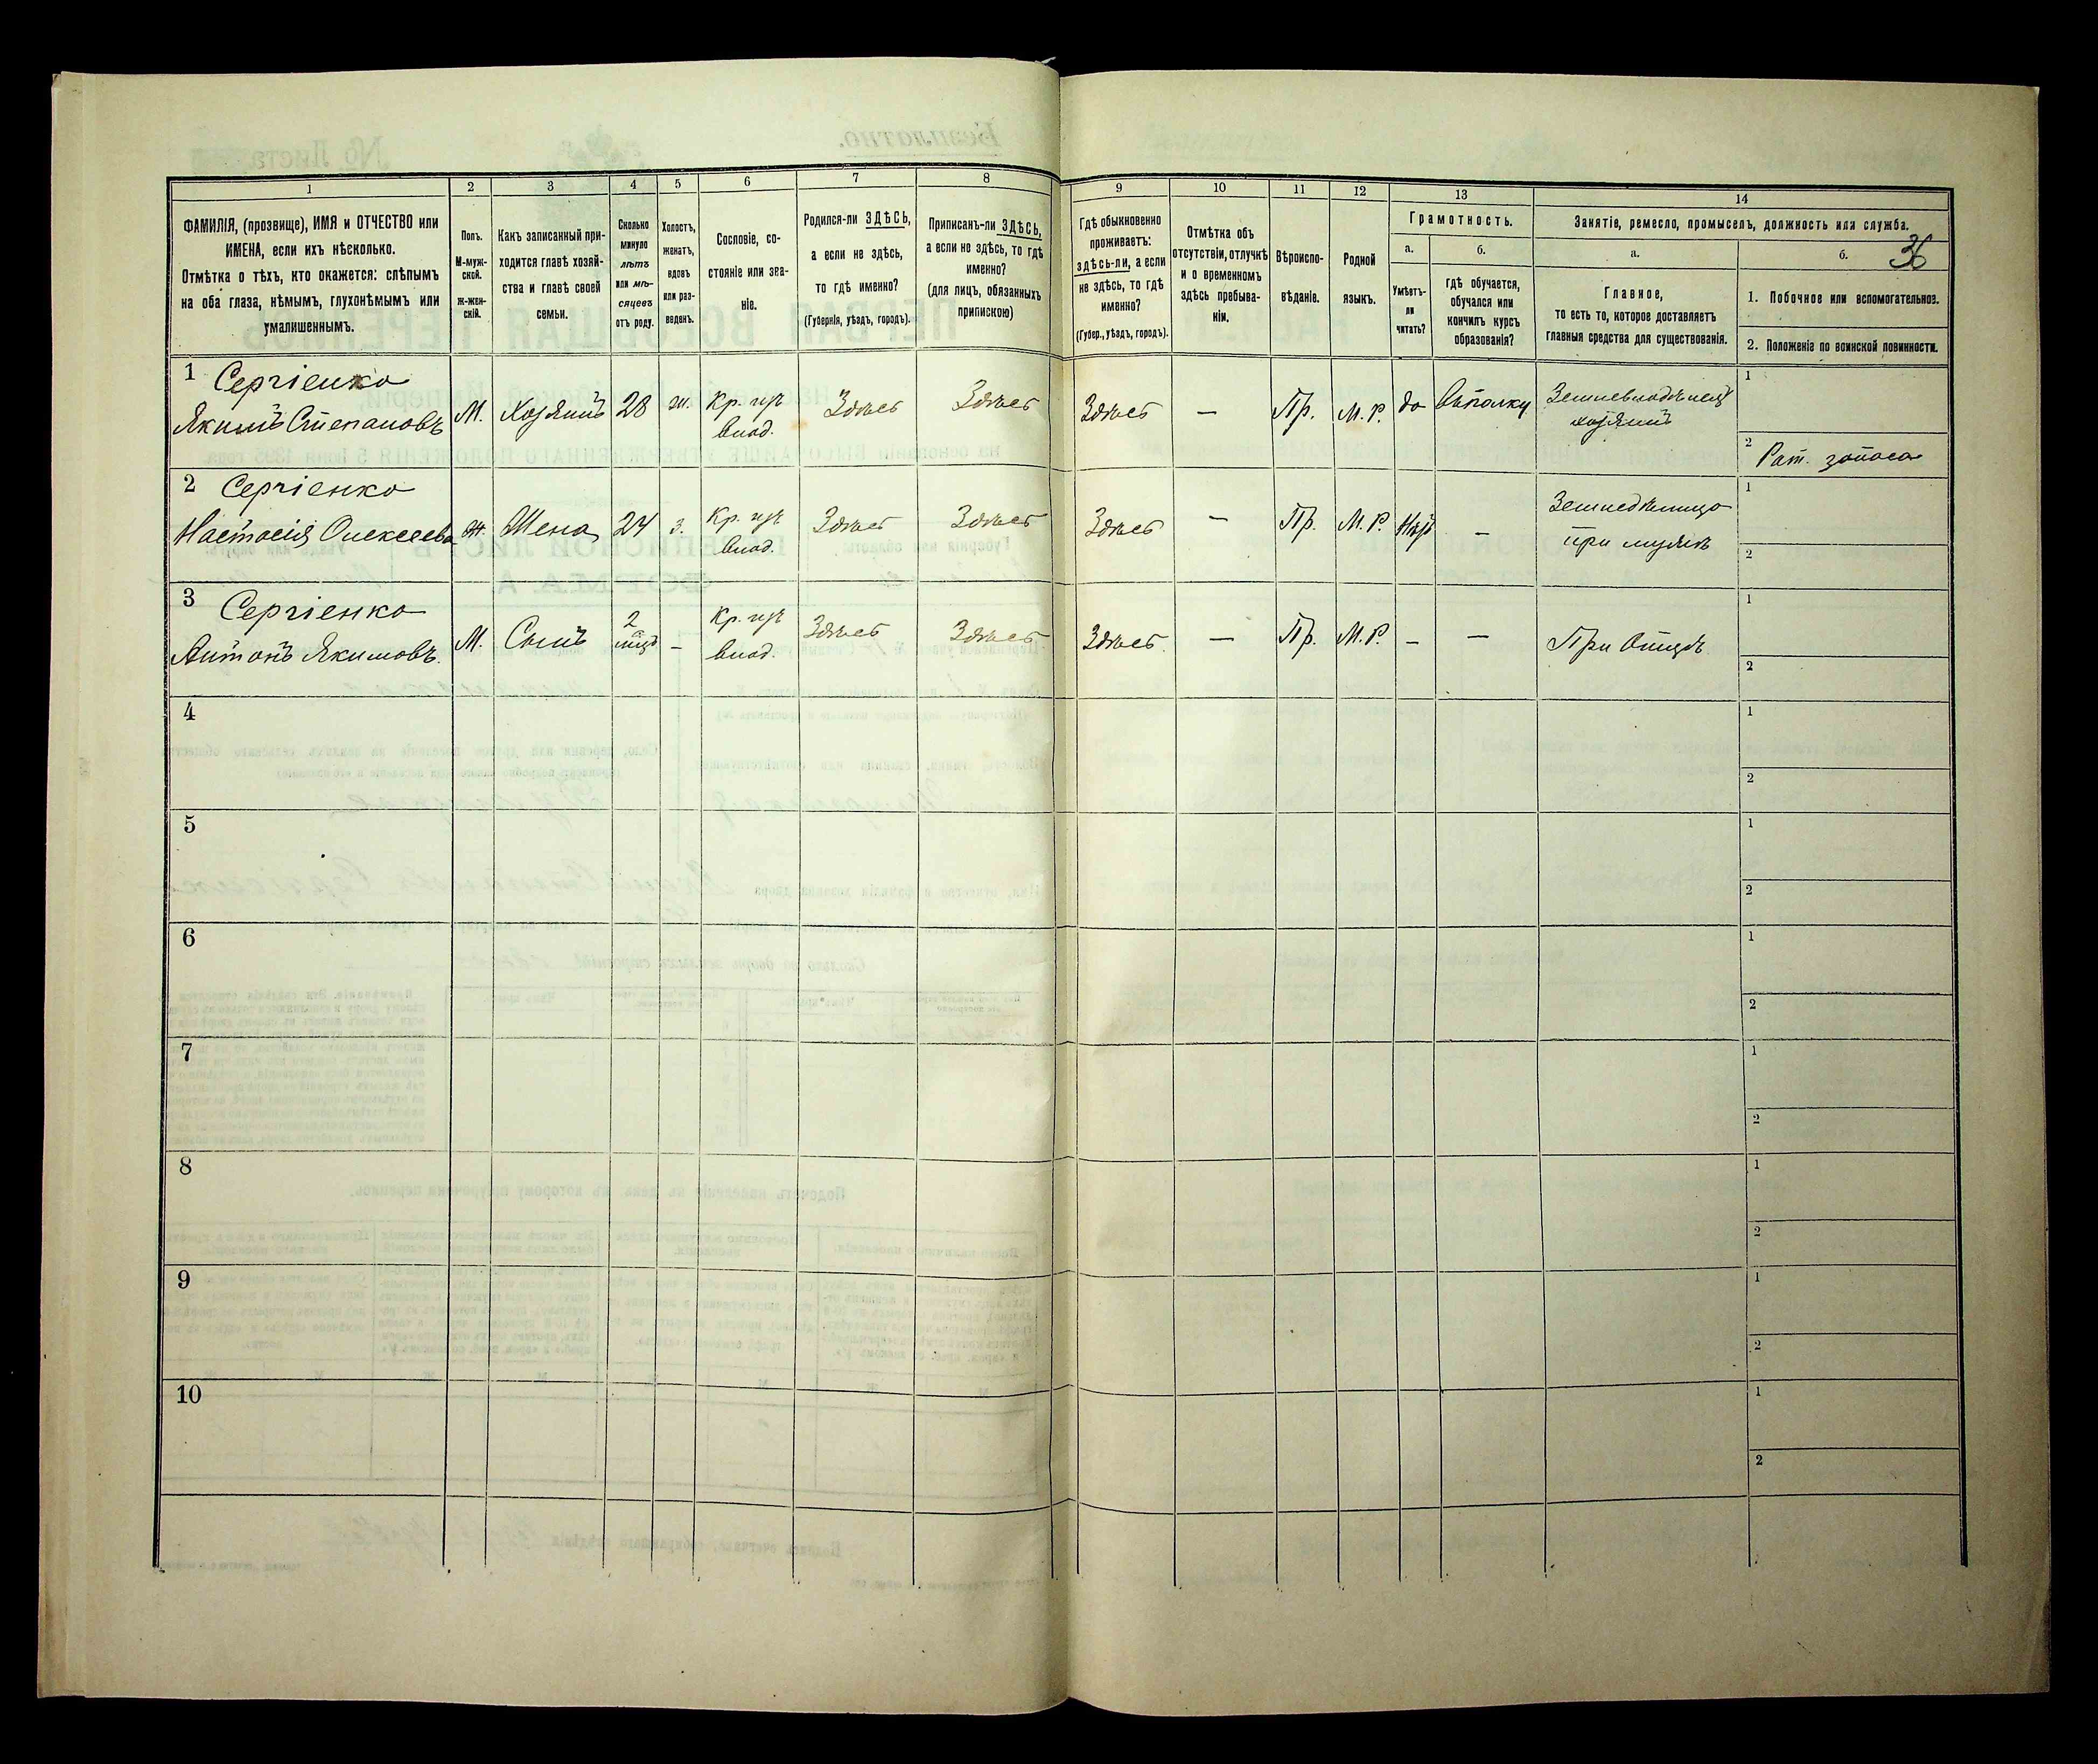 36
1 2 3 4 5 6 7 8 9 10 11 12 13 14
ФАМИЛІЯ, (прозвище), ИМЯ и ОТЧЕСТВО или
ИМЕНА, если ихъ нѣсколько.
Отмѣтка о тѣхъ, кто окажется: слѣпымъ
на оба глаза, нѣмымъ, глухонѣмымъ или
умалишеннымъ.
Полъ.
М-муж-
ской.
Ж-жен-
скій.
Какъ записанный при-
ходится главѣ хозяй-
ства и главѣ своей
семьи.
Сколько
минуло
лѣтъ
или мѣ-
сяцевъ
отъ роду.
Холостъ,
женатъ,
вдовъ
или раз-
веденъ.
Сословіе, со-
стояніе или зва-
ніе.
Родился-ли ЗДѢСЬ,
а если не здѣсь,
то гдѣ именно?
(Губернія, уѣздъ, городъ).
Приписанъ-ли ЗДѢСЬ,
а если но здѣсь, то гдѣ
именно?
(для лицъ, обязанныхъ
припискою)
Гдѣ обыкновенно
проживаетъ:
здѣсь-ли, а если
не здѣсь, то гдѣ
именно?
(Губер., уѣздъ, городъ).
Отмѣтка объ
отсутствіи, отлучкѣ
и о временномъ
здѣсь пребыва-
ніи.
Вѣроиспо-
вѣданіе.
Родной
языкъ.
Грамотность.
а.
Умѣетъ-
ли
читать?
б.
гдѣ обучается,
обучался или
кончилъ курсъ
образованія?
Занятіе, ремесло, промыселъ, должность или служба.
а.
Главное,
то есть то, которое доставляетъ
главныя средства для существованія.
б.
1. Побочное или вспомогательное.
2. Положеніе по воинской повинности.
1 Сергіенко
Якимъ Степановъ М. Хозяинъ 28 ж. Кр. изъ влад. Здѣсь Здѣсь Здѣсь — Пр. М.Р. да Въ полку Земл
хозяинъ
1
2 Рат. запаса
2 Сергіенко
Настасія Олексеева ж. Жена 24 з. Кр. изъ влад. Здѣсь Здѣсь Здѣсь — Пр. М.Р. —
при мужѣ
1
2
3 Сергіенко
Антонъ Якимовъ. М. Сынъ 2 мѣц — Кр. изъ влад. Здѣсь Здѣсь Здѣсь — Пр. М.Р. — — При Отцѣ
1
2
4
1
2
5
1
2
6
1
2
7
1
2
8
1
2
9
1
2
10
1
2